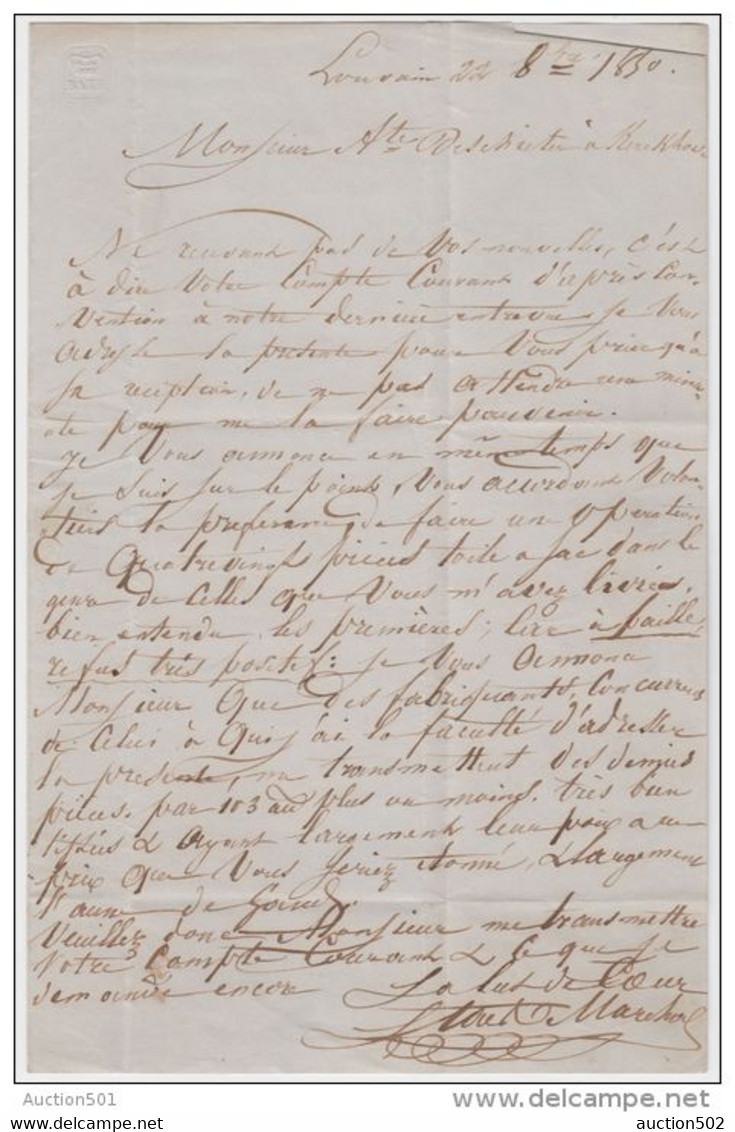 Louvain 22 8bre 1850.
Monsieur Ate De à Kerckhove
Ne recevant pas de Vos nouvelles, c'est
à dire Votre Compte Courant d'après Con-
vention à notre dernière entrevue je Vous
adresse la présente pour Vous prier qu'à
sa reception, de ne pas attendre une minu-
te pour me la faire parvenir.
je Vous annonce en même temps que
je suis sur le point, Vous accordant Volon-
tiers la preference, de faire une Operation
de quatrevingt pièces toile a sac dans le
genre de Celles que Vous m'avez livrées,
bien entendu les premières; car à paille
refus très positif: je Vous annonce
Monsieur que des fabriquants, Concurrens
de Celui à qui j'ai la faculté d'adresser
la presente, me transmettent des demies
pièces. par 103 au plus ou moins. très bien
& ayant largement leur poix a un
prix que Vous seriez étonné, & largement
l'aune de Gand.
Veuillez donc Monsieur me transmettre
Votre Compte Courant & ce que je
demande encore Salut de Coeur
Marchal
Auction501
delcampe.net
Auction501
auction502